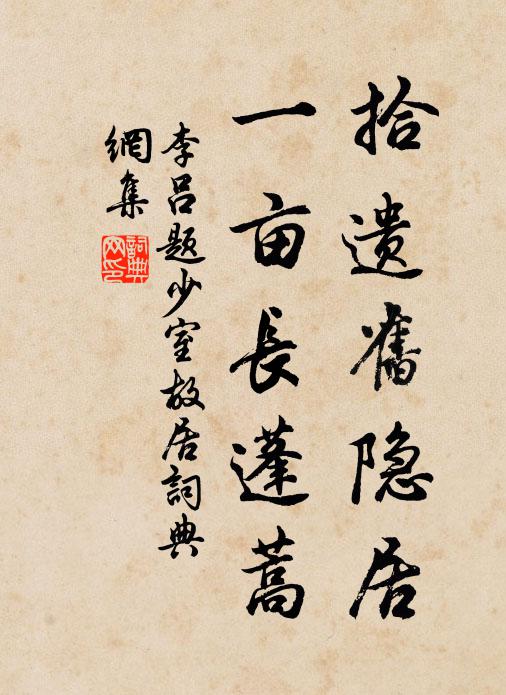 拾遗舊隐居
一亩長蓬蒿
李吕题少室故居詞典
網集
詞典
网印